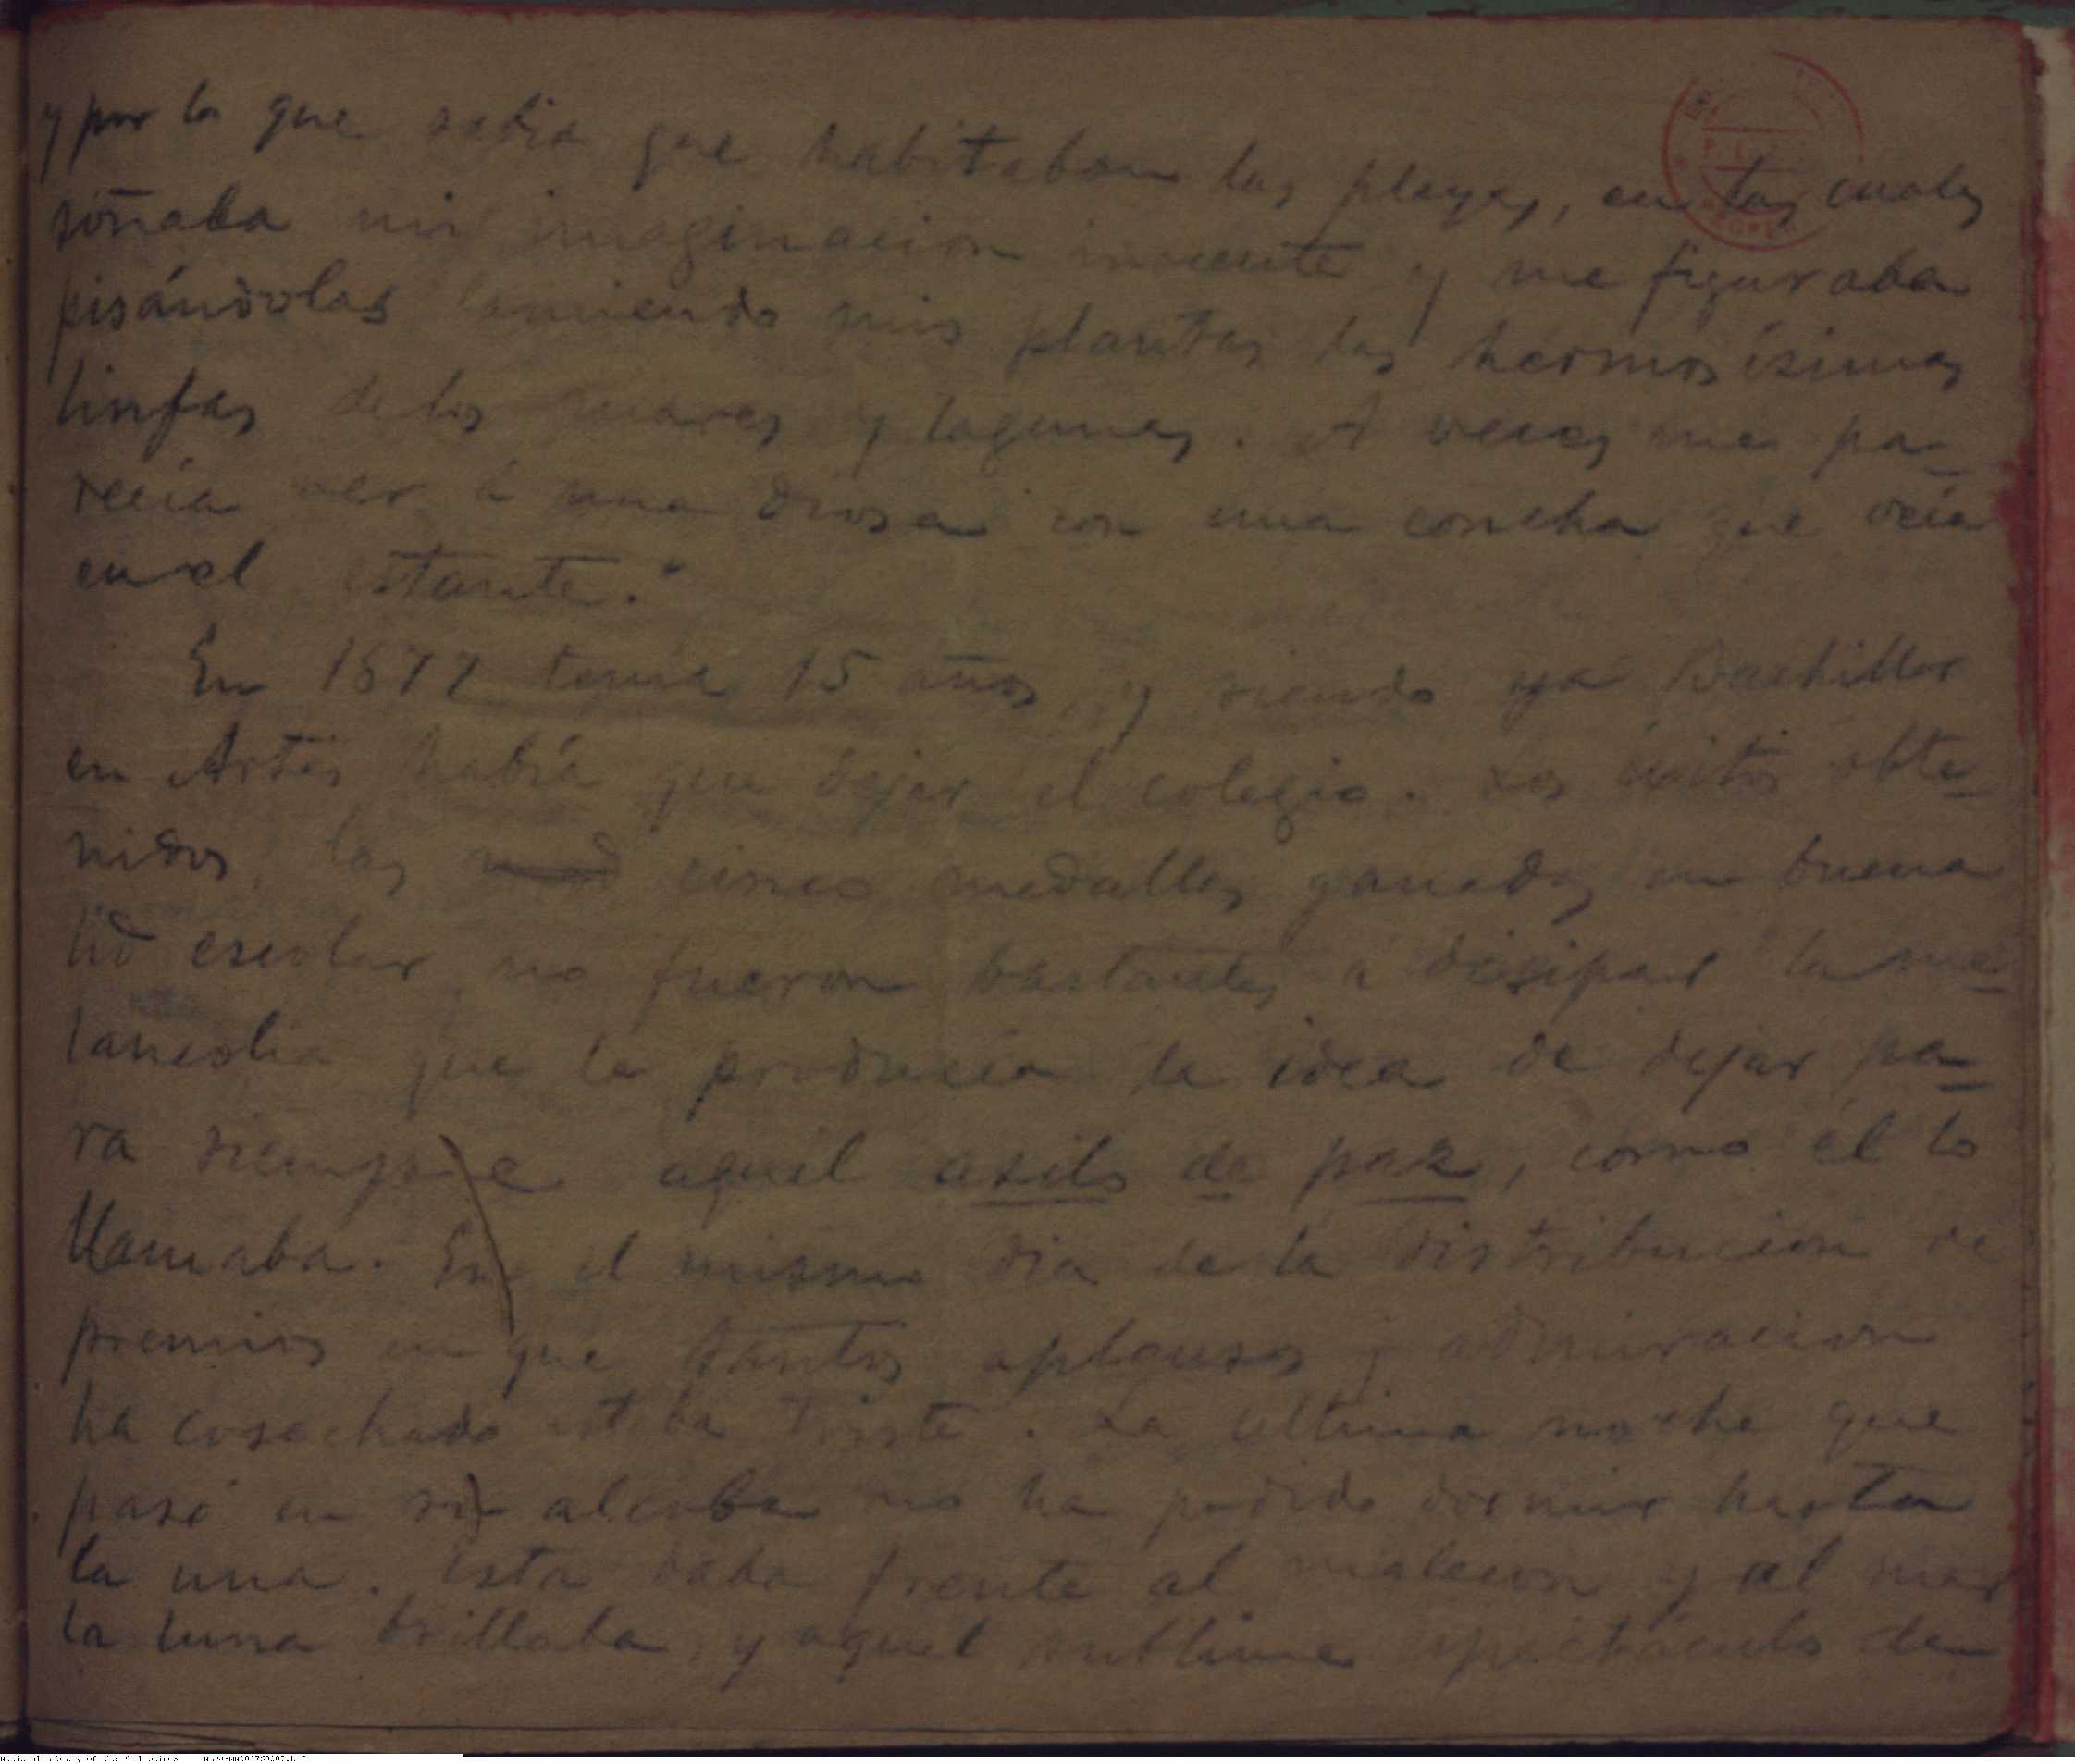 y por lo que sabia que habitaban las playas, en las cuales
soñaba mi imaginacion inocente y me figuraba
pisándolas lamiendo mis plantas las hermosísimas
linfas de los mares y lagunas. A veces me pa-
recía ver á una diosa con una concha que veía
en el estante."
En 1877 tenía 15 años, y siendo ya Bachiller
en Artes había que dejar el colegio. Los éxitos obte-
nidos, las cinco medallas ganadas en buena
lid escolar no fueron bastantes á disipar la me-
lancolia que le producía la idea de dejar pa-
ra siempre aquel asilo de paz, como él lo
llamaba. En el mismo dia de la distribucion de
premios en que tantos aplausos y admiracion
ha cosechado estaba triste. La ultima noche que
pasó en su alcoba no ha podido dormir hasta
la una. Esta daba frente al malecon y al mar
la luna brillaba, y aquel sublime espectáculo de